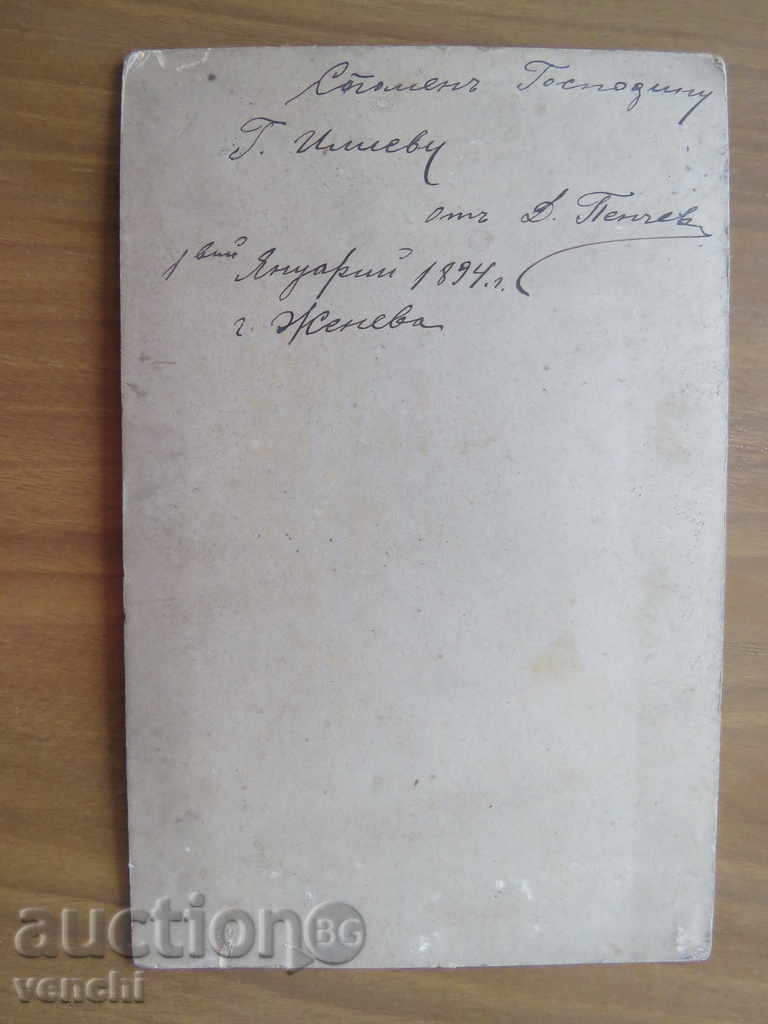 Спомен Господину
Г. Илиеву
отъ Д. Пенчев
1вий Януарий 1894.г.
г. Женева
auctionBG
venchi